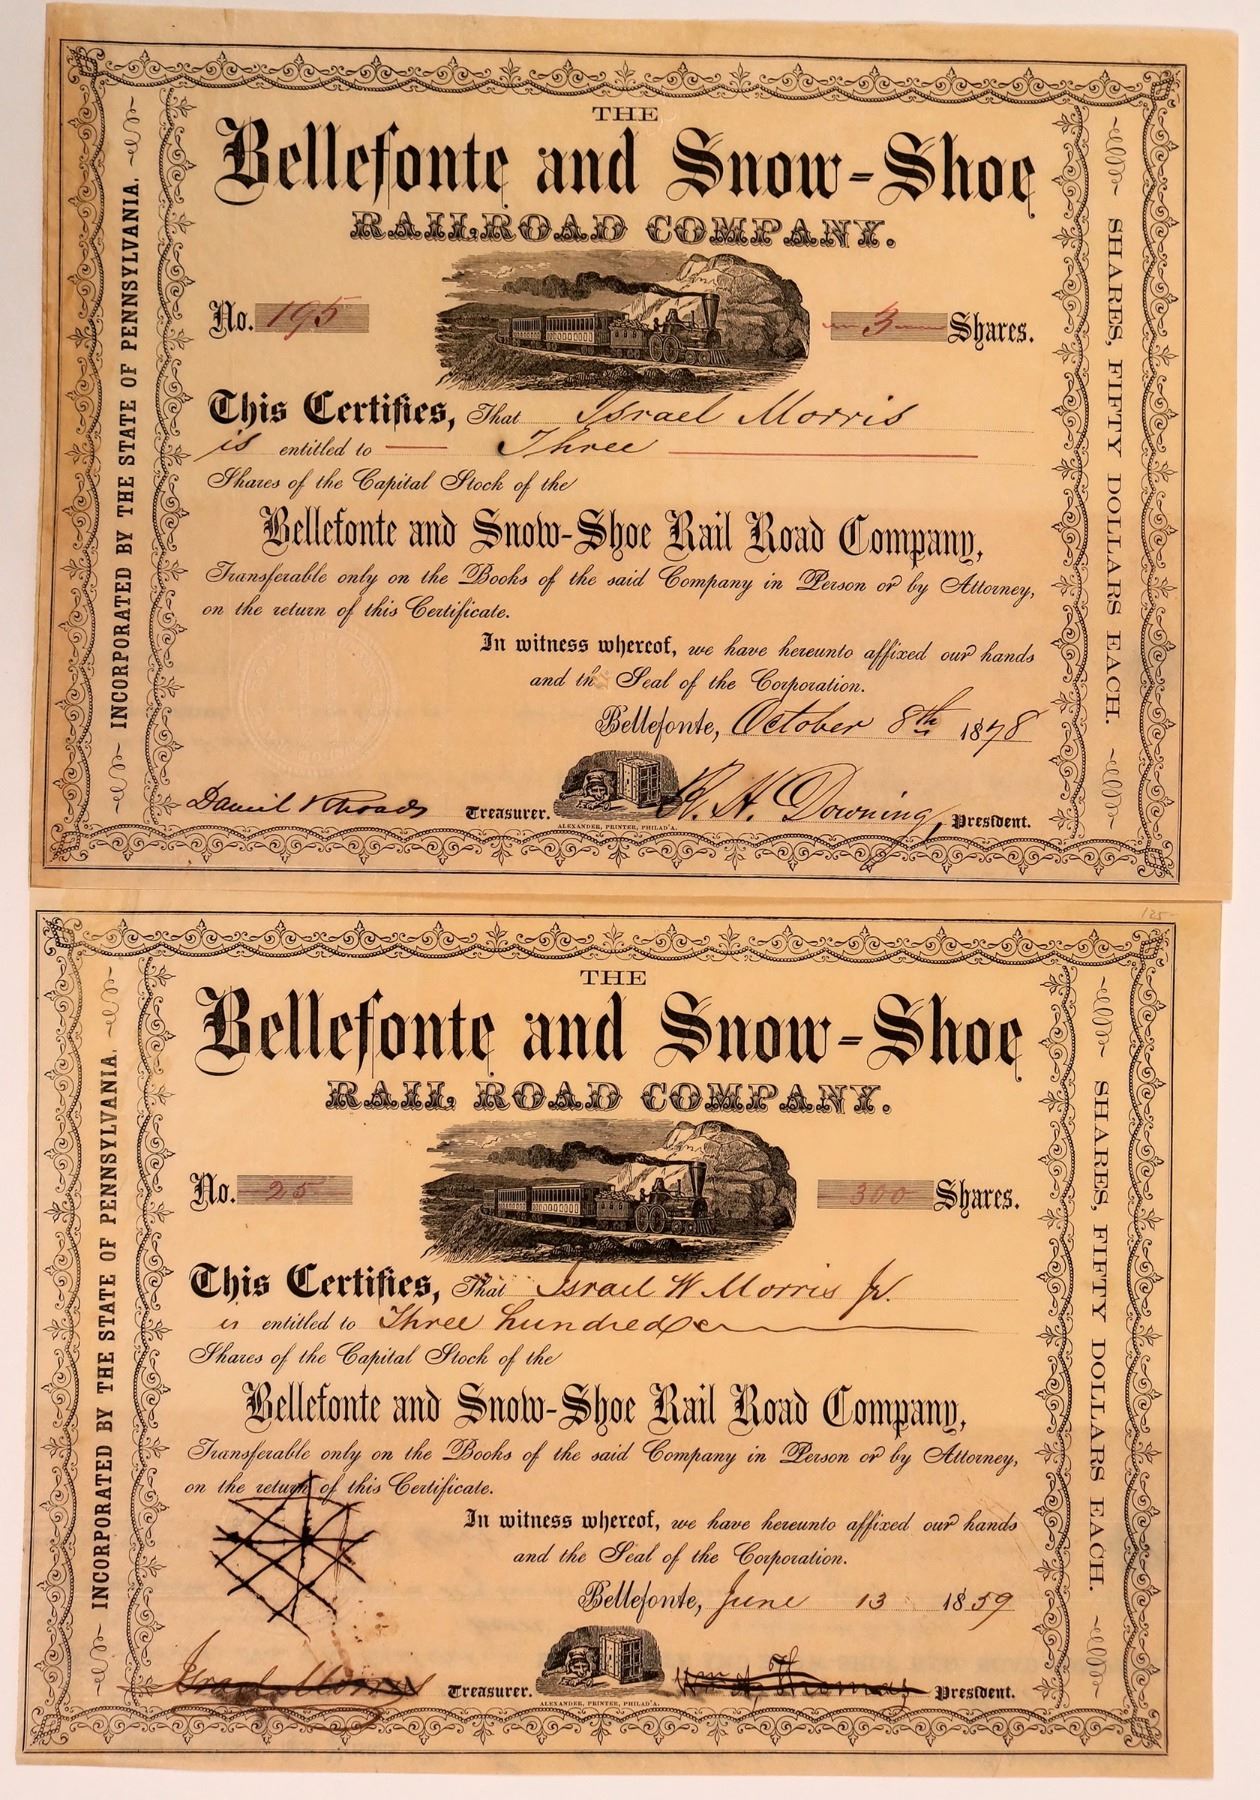 THE
Bellefonte and Snow-Shoe
RAILROAD COMPANY.
No. 195
3 Shares.
This Certifies, That Israel Morris
is entitled to Three
Shares of the Capital Stock of the
Bellefonte and Snow-Shoe Rail Road Company,
Transferable only on the Books of the said Company in Person or by Attorney,
on the return of this Certificate.
In witness whereof, we have hereunto affixed our hands
and th Seal of the Corporation.
Bellefonte, October 8th 1878
Daniel Rhoads Treasurer.
R. H. Downing, President.
ALEXANDER, PRINTER, PHILAD'A.
INCORPORATED BY THE STATE OF PENNSYLVANIA.
SHARES, FIFTY DOLLARS EACH.
125-
THE
Bellefonte and Snow-Shoe
RAIL ROAD COMPANY.
No. 25
300 Shares.
This Certifies, That Israel W Morris Jr.
is entitled to Three hundred
Shares of the Capital Stock of the
Bellefonte and Snow-Shoe Rail Road Company,
Transferable only on the Books of the said Company in Person or by Attorney,
on the return of this Certificate.
In witness whereof, we have hereunto affixed our hands
and the Seal of the Corporation.
Bellefonte, June 13 1859
Israel Morris Treasurer.
Wm A Thomas President.
ALEXANDER, PRINTER, PHILAD'A.
INCORPORATED BY THE STATE OF PENNSYLVANIA.
SHARES, FIFTY DOLLARS EACH.